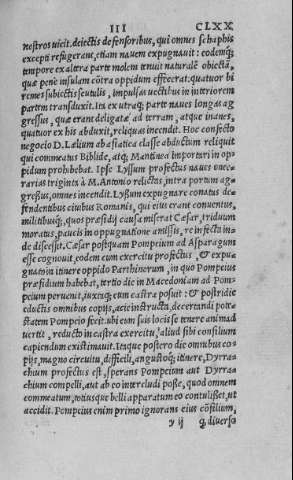 III CLXX
nestros vicit. deiectis defensoribus, qui omnes scaphis
excepti refugerant, etiam navem expugnavit: eodemq;
tempore ex altera parte molem tenuit naturalē obiectā,
quæ penè insulam cōtra oppidum effecerat: quatuor bi
remes subiectis scutulis, impulsas vectibus in interiorem
partem transduxit. Ita ex utraq; parte naves longas ag
gressus, quæ erant deligatæ ad terram, atque inanes,
quatuor ex his abduxit, reliquas incendit. Hoc confecto
negocio D. Lælium ab asiatica classe abductum reliquit
qui commeatus Biblide, atq; Mantinea importari in op
pidum prohibebat. Ipse Lyssum profectus naves onera
rias triginta à M. Antonio relictas, intra portum ag
gressus, omnes incendit. Lyssum expugnare conatus de
fendentibus civibus Romanis, qui eius erant conventus,
militibusq;, quos præsidij causa miserat Cæsar, triduum
moratus, paucis in oppugnatione amissis, re infecta in-
de discessit. Cæsar postquam Pompeium ad Asparagum
esse cognovit, eodem cum exercitu profectus, & expu
gnato in itinere oppido Parthinorum, in quo Pompeius
præsidium habebat, tertio die in Macedoniam ad Pom-
peium pervenit, iuxtaq; eum castra posuit: & postridie
eductis omnibus copijs, acie instructa, decernendi pote
statem Pompeio fecit. ubi eum suis locis se tenere animad
vertit, reducto in castra exercitu, aliud sibi consilium
capiendum existimavit. Itaque postero die omnibus co
pijs, magno circuitu, difficili, angustoq; itinere, Dyrra
chium profectus est, sperans Pompeium aut Dyrra
chium compelli, aut ab eo intercludi posse, quod omnem
commeatum, totiusque belli apparatum eo contulisset, ut
accidit. Pompeius enim primo ignorans eius cōsilium,
y ij q, diverso